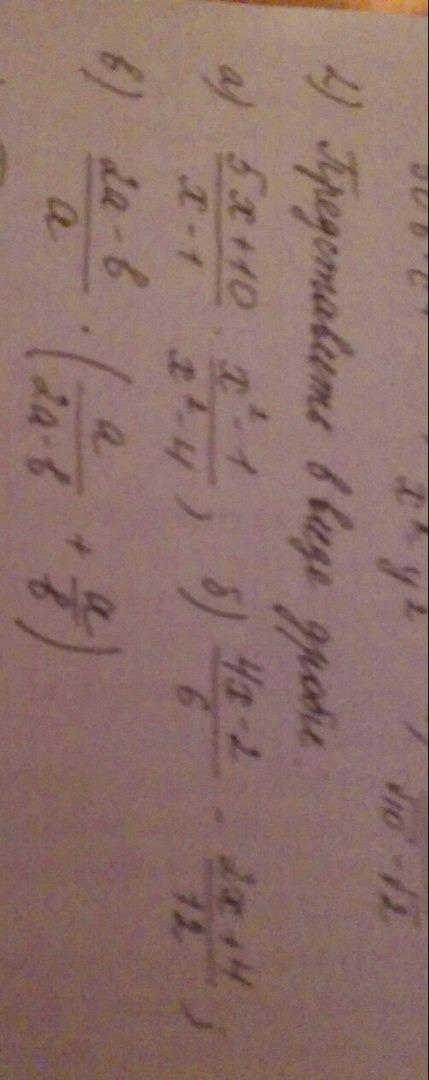 x² - y²
√10 - √2
2) Представить в виде дроби.
а) (5x+10)/(x-1) · (x²-1)/(x²-4) ; б) (4x-2)/6 - (2x+4)/12 ;
в) (2a-b)/a · (a/(2a-b) + a/b)